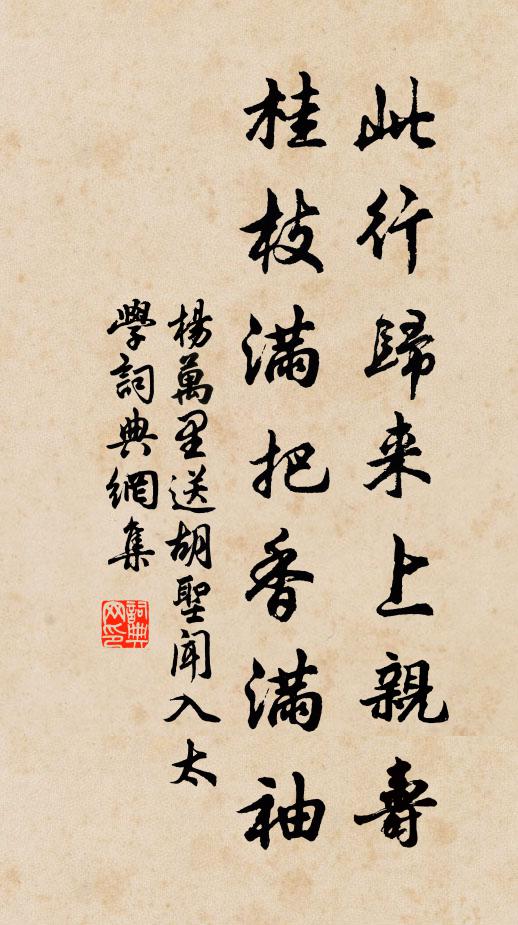 此行歸来上親壽
桂枝滿把香滿袖
楊萬里送胡聖闻入太
學詞典網集
詞典
网印